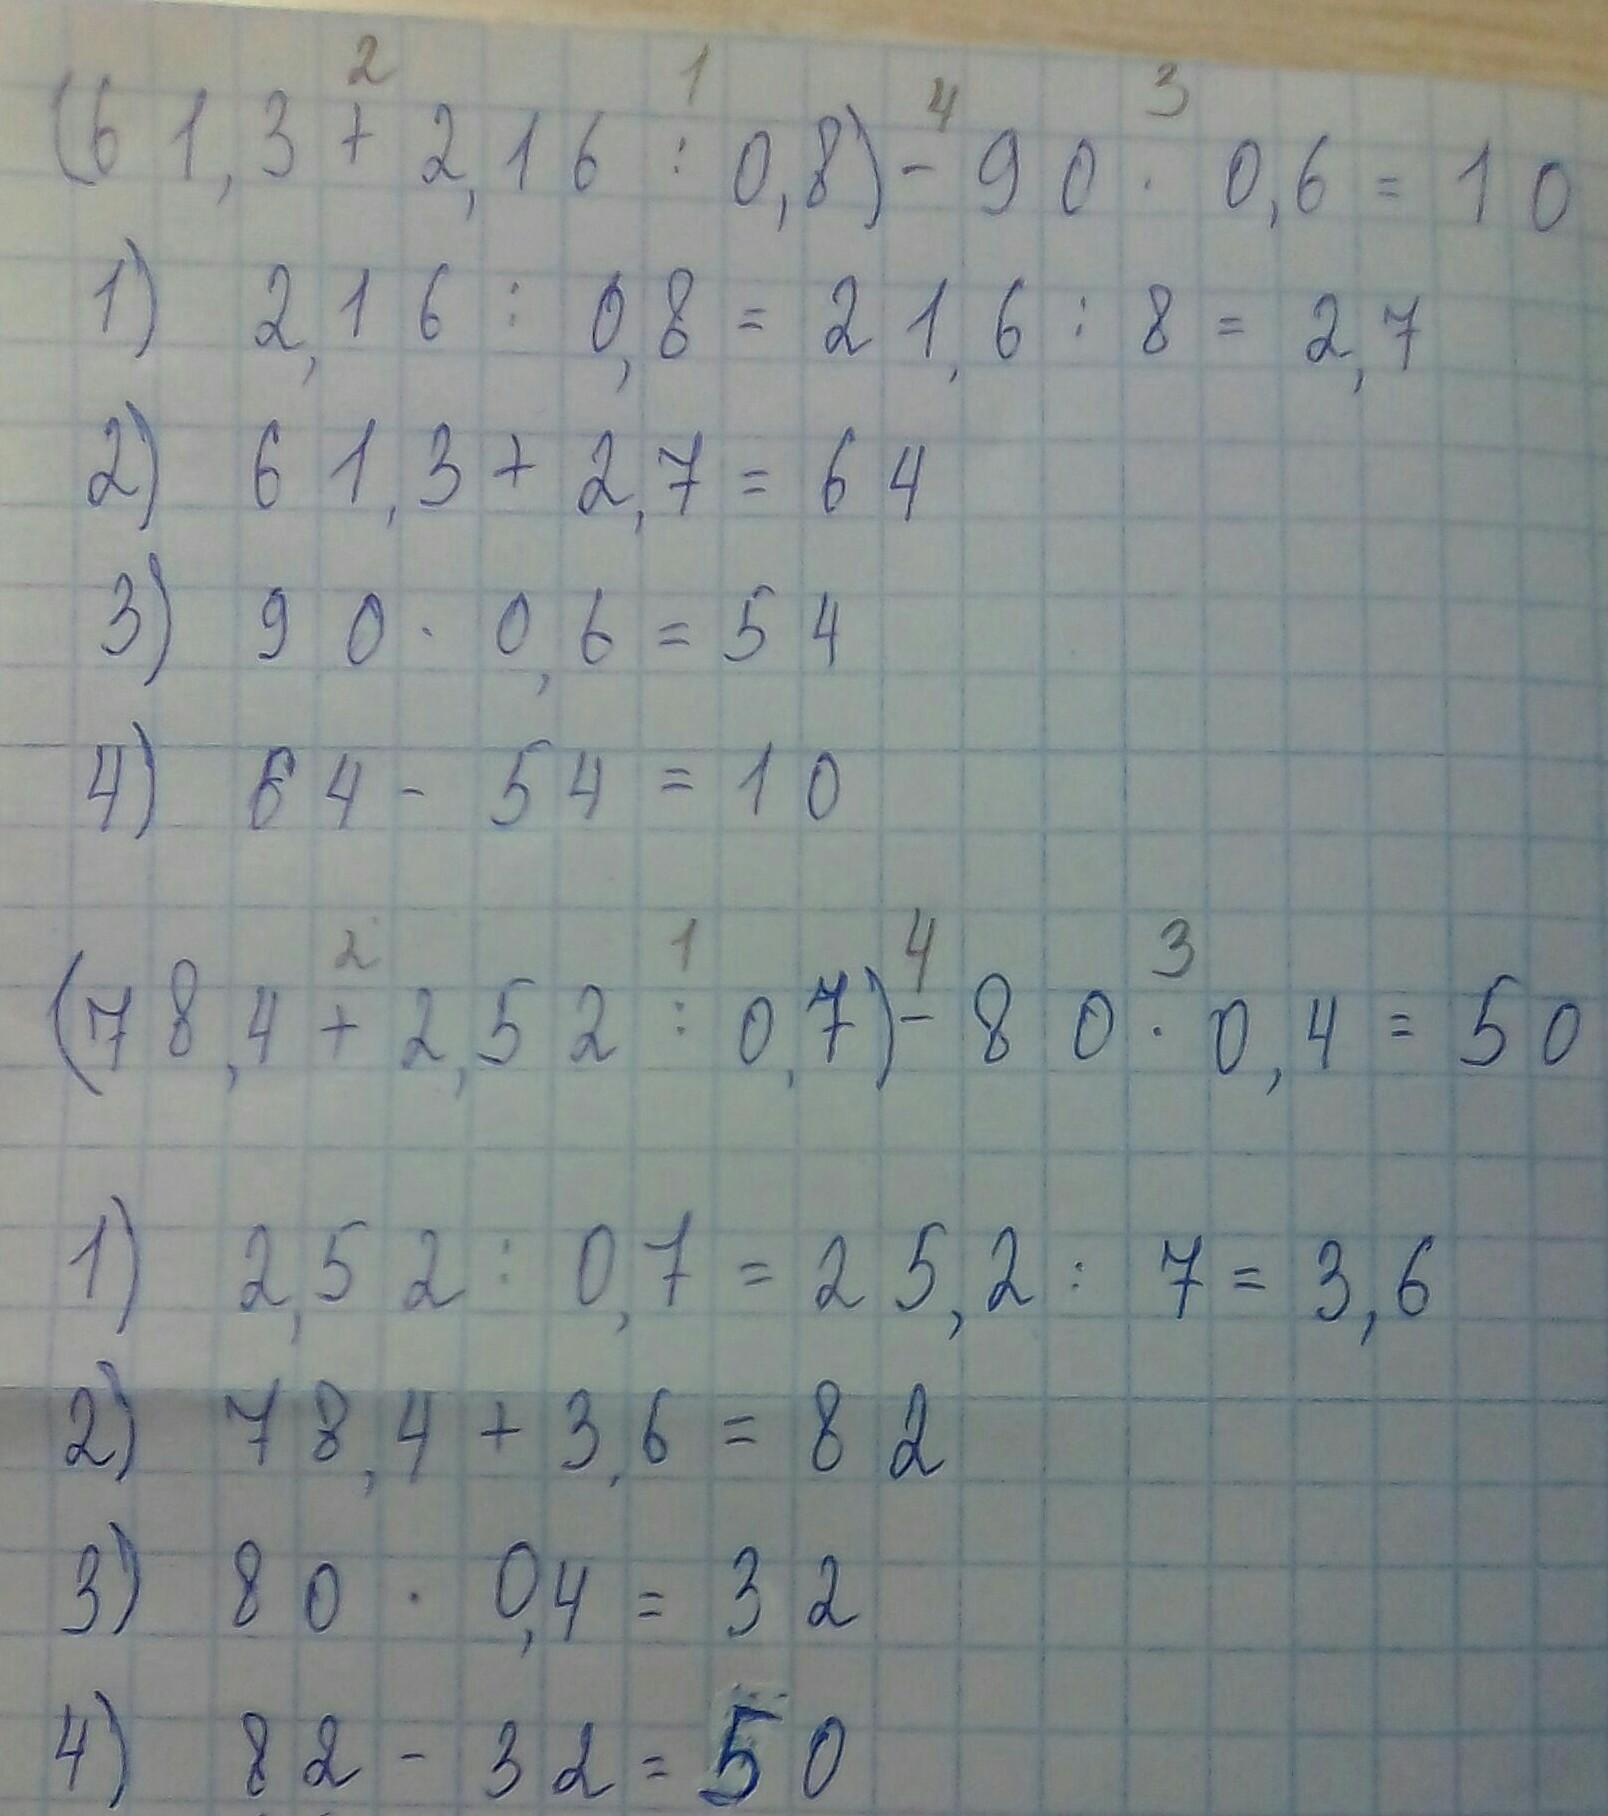 2 1 4 3
(61,3 + 2,16 : 0,8) - 90 · 0,6 = 10
1) 2,16 : 0,8 = 21,6 : 8 = 2,7
2) 61,3 + 2,7 = 64
3) 90 · 0,6 = 54
4) 64 - 54 = 10
2 1 4 3
(78,4 + 2,52 : 0,7) - 80 · 0,4 = 50
1) 2,52 : 0,7 = 25,2 : 7 = 3,6
2) 78,4 + 3,6 = 82
3) 80 · 0,4 = 32
4) 82 - 32 = 50